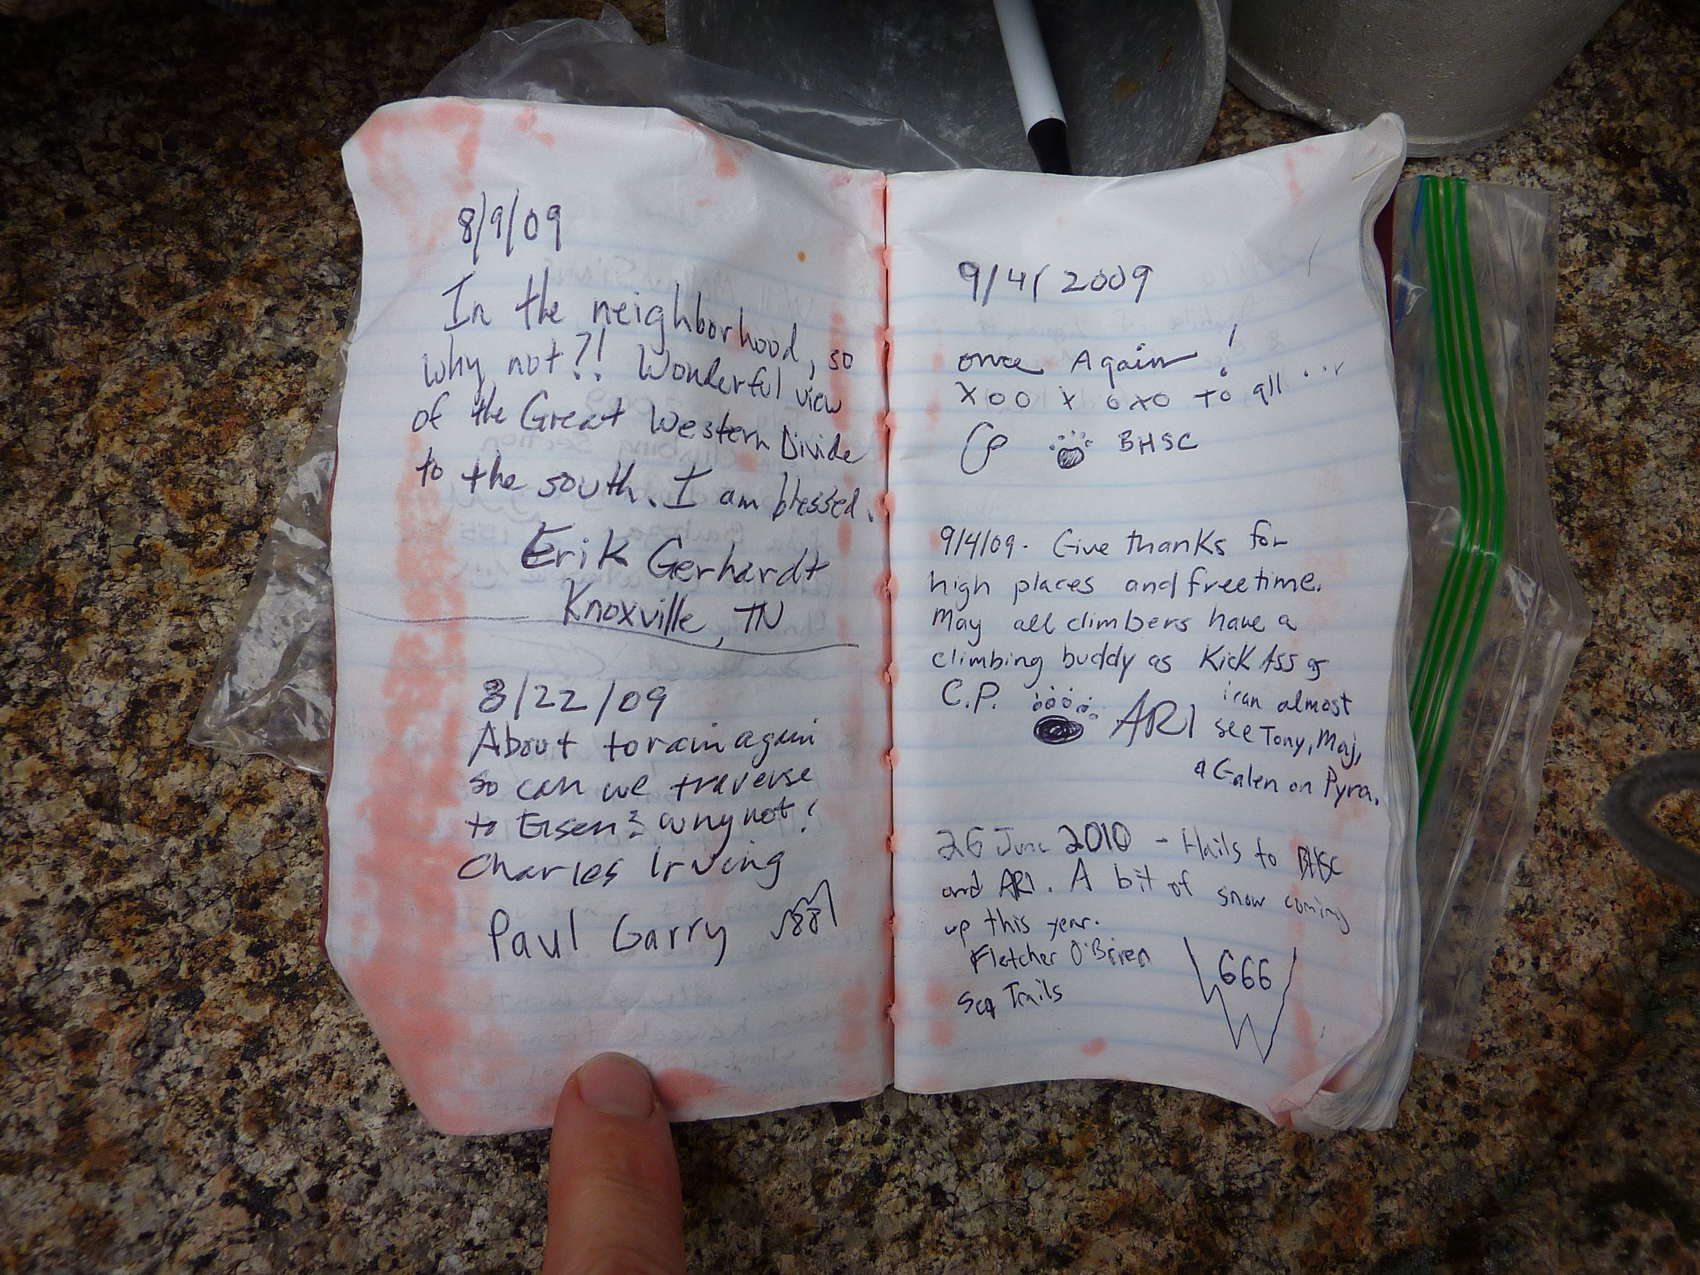 8/9/09
In the neighborhood, so
why not?! Wonderful view
of the Great Western Divide
to the south. I am blessed.
Erik Gerhardt
Knoxville, TN
8/22/09
About to rain again
so can we traverse
to Eisen? why not!
Charles Irving
Paul Garry
9/4/2009
once Again!
XOO X OXO to all ...
CP BHSC
9/4/09 - Give thanks for
high places and free time.
May all climbers have a
climbing buddy as Kick Ass as
C.P. ARI i can almost
see Tony, Maj,
& Galen on Pyra.
26 June 2010 - Hails to BHSC
and ARI. A bit of snow coming
up this year.
Fletcher O'Brien
Seq Trails
666